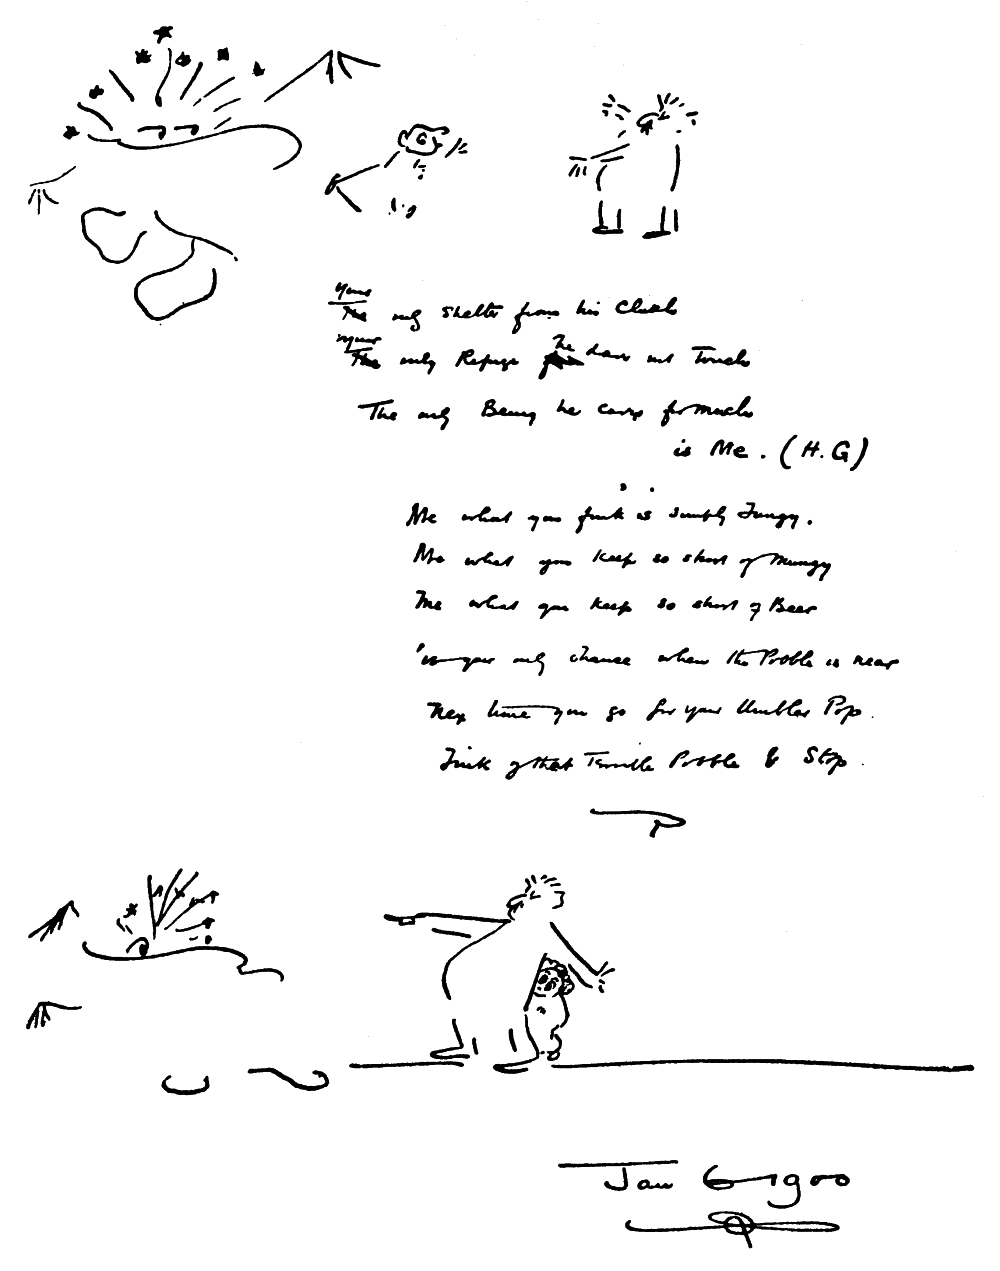 Your
The only shelter from his Clutch
Your
The only Refuge he dare not Touch
The only Being he cares for much
is Me. (H.G)
Me what you fink is simply Fungy.
Me what you keep so short of Mungy
Me what you keep so short of Beer
'is your only chance when the Pobble is near
Nex time you go for your Umbler Pop.
Fink of that Terrible Pobble & Stop.
G
Jan